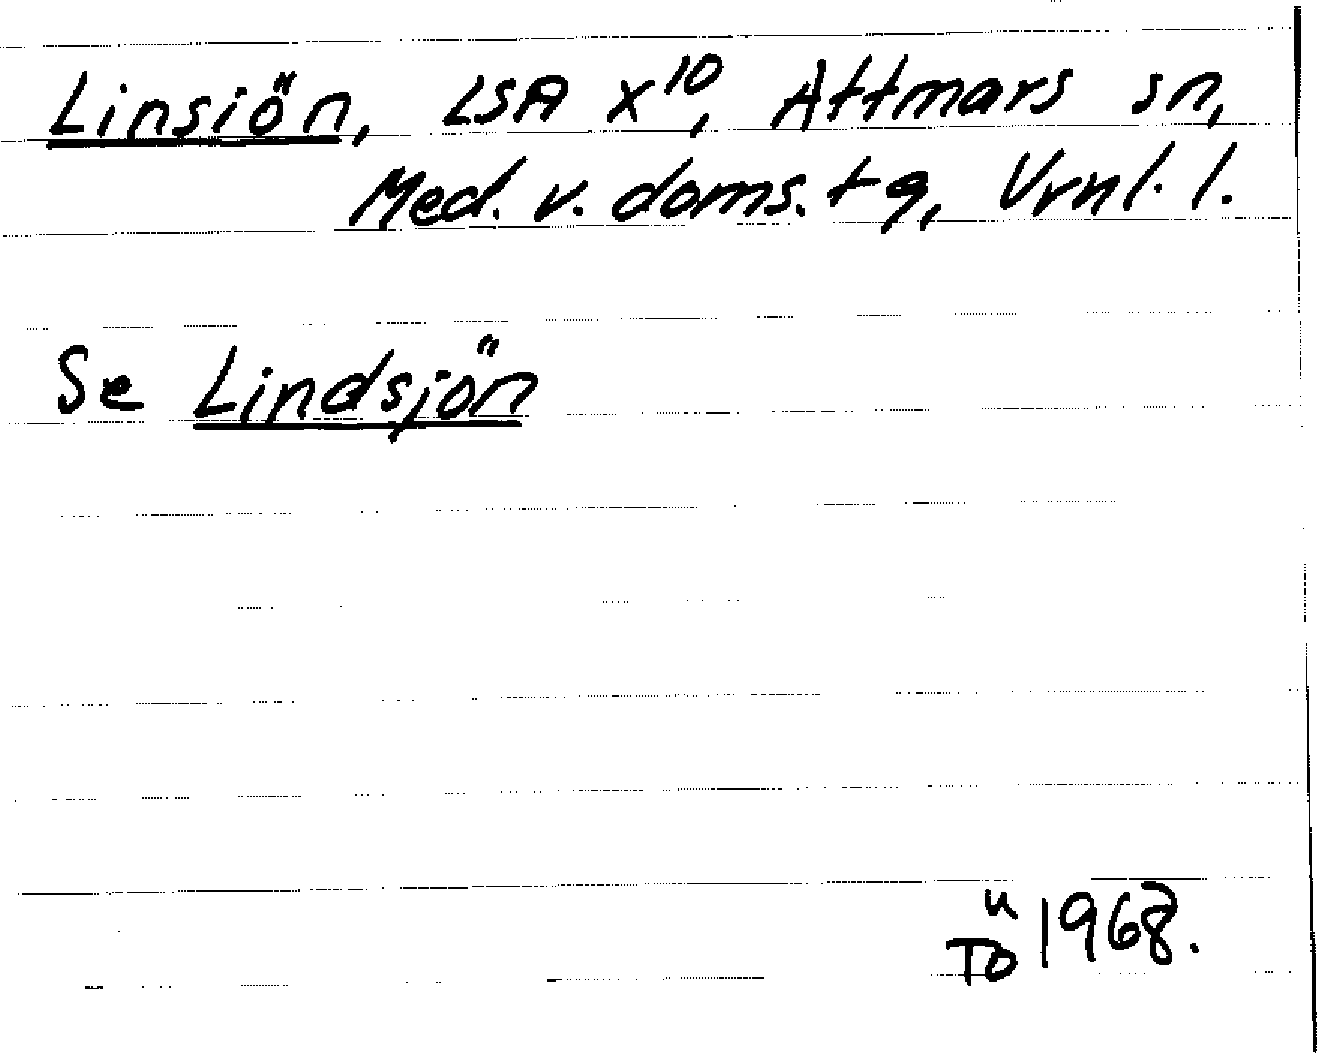 Linsiön, LSA X¹⁰, Attmars sn,
Med. v. doms. tg, Vrnl. l.
Se Lindsjön
TÖ 1968.